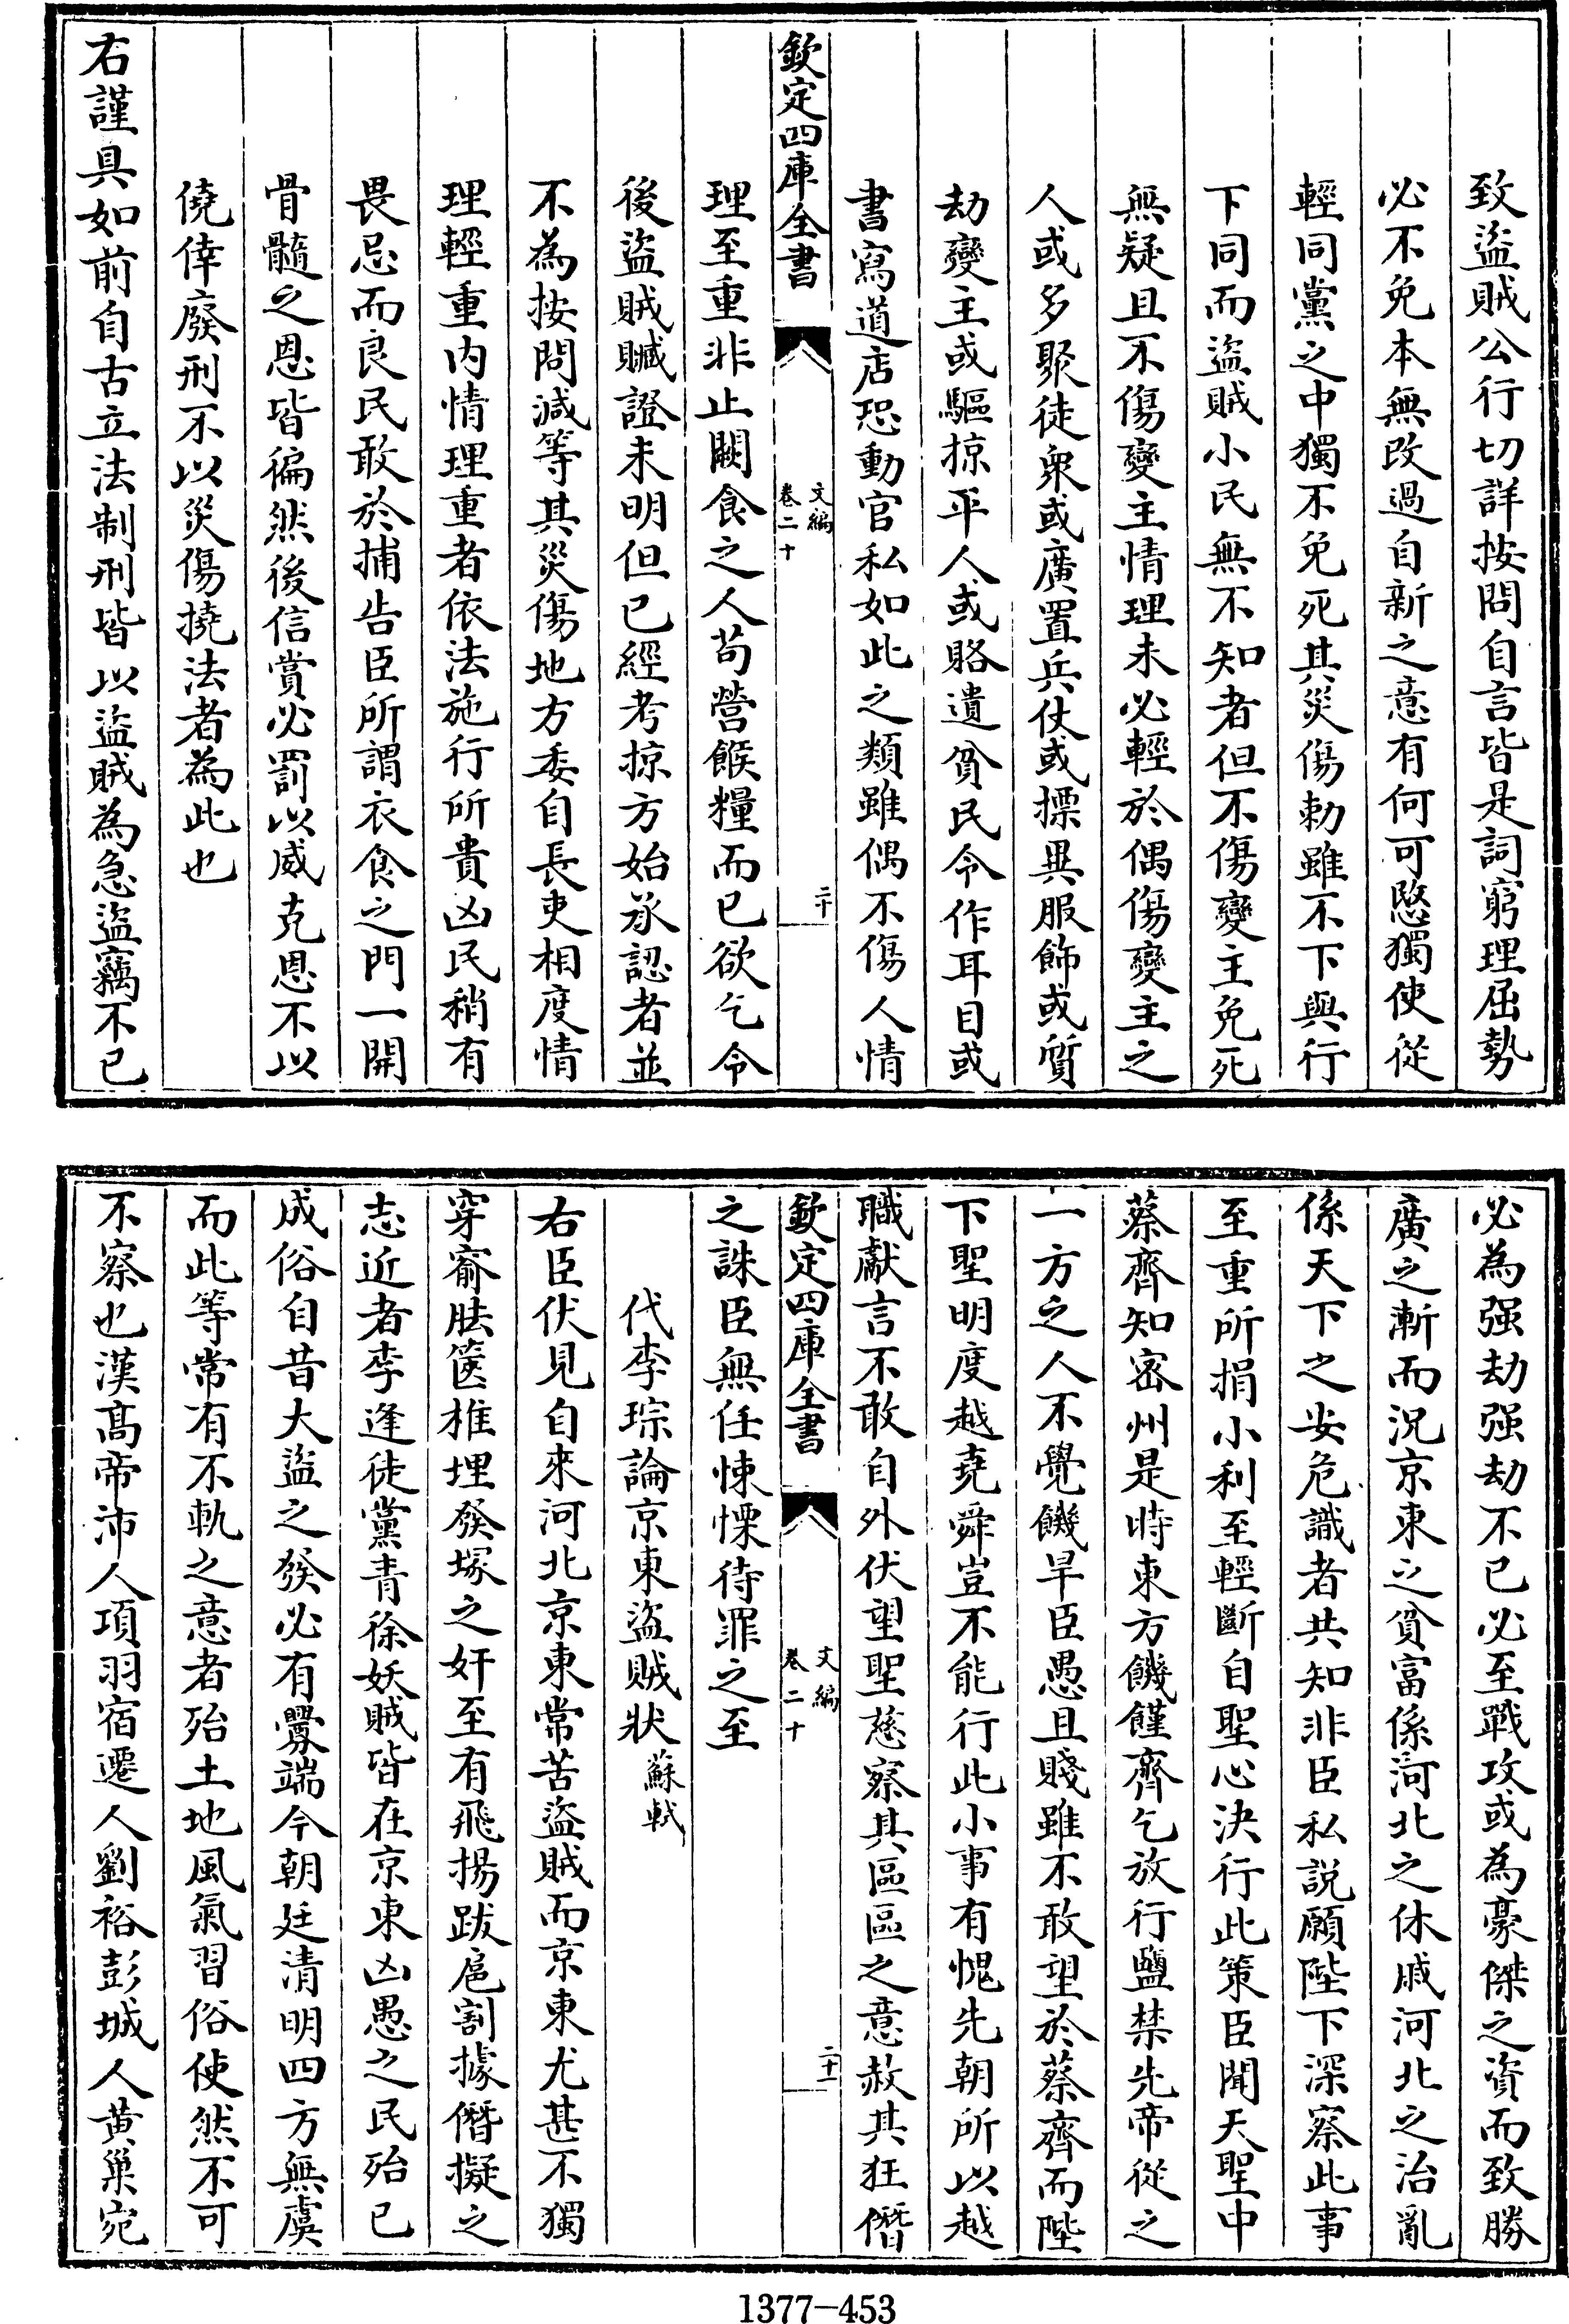 致盜賊公行切詳按問自言皆是詞窮理屈勢
必不免本無改過自新之意有何可愍獨使從
輕同黨之中獨不免死其災傷勅雖不下與行
下同而盜賊小民無不知者但不傷變主免死
無疑且不傷變主情理未必輕於偶傷變主之
人或多聚徒衆或廣置兵仗或摽異服飾或質
劫變主或驅掠平人或賂遺貧民令作耳目或
書寫道店恐動官私如此之類雖偶不傷人情
欽定四庫全書
文編
卷二十
二十
理至重非止闕食之人苟營餱糧而已欲乞令
後盜賊贓證未明但已經考掠方始承認者並
不為按問減等其災傷地方委自長吏相度情
理輕重內情理重者依法施行所貴凶民稍有
畏忌而良民敢於捕告臣所謂衣食之門一開
骨髓之恩皆徧然後信賞必罰以威克恩不以
僥倖廢刑不以災傷撓法者為此也
右謹具如前自古立法制刑皆以盜賊為急盜竊不已
必為强劫强劫不已必至戰攻或為豪傑之資而致勝
廣之漸而況京東之貧富係河北之休戚河北之治亂
係天下之安危識者共知非臣私說願陛下深察此事
至重所捐小利至輕斷自聖心決行此策臣聞天聖中
蔡齊知密州是時東方饑饉齊乞放行鹽禁先帝從之
一方之人不覺饑旱臣愚且賤雖不敢望於蔡齊而陛
下聖明度越堯舜豈不能行此小事有愧先朝所以越
職獻言不敢自外伏望聖慈察其區區之意赦其狂僭
欽定四庫全書
文編
卷二十
二十一
之誅臣無任悚慄待罪之至
代李琮論京東盜賊狀 蘇軾
右臣伏見自來河北京東常苦盜賊而京東尤甚不獨
穿窬胠篋椎埋發塚之奸至有飛揚跋扈割據僭擬之
志近者李逢徒黨青徐妖賊皆在京東凶愚之民殆已
成俗自昔大盜之發必有釁端今朝廷清明四方無虞
而此等常有不軌之意者殆土地風氣習俗使然不可
不察也漢高帝沛人項羽宿遷人劉裕彭城人黃巢宛
1377-453